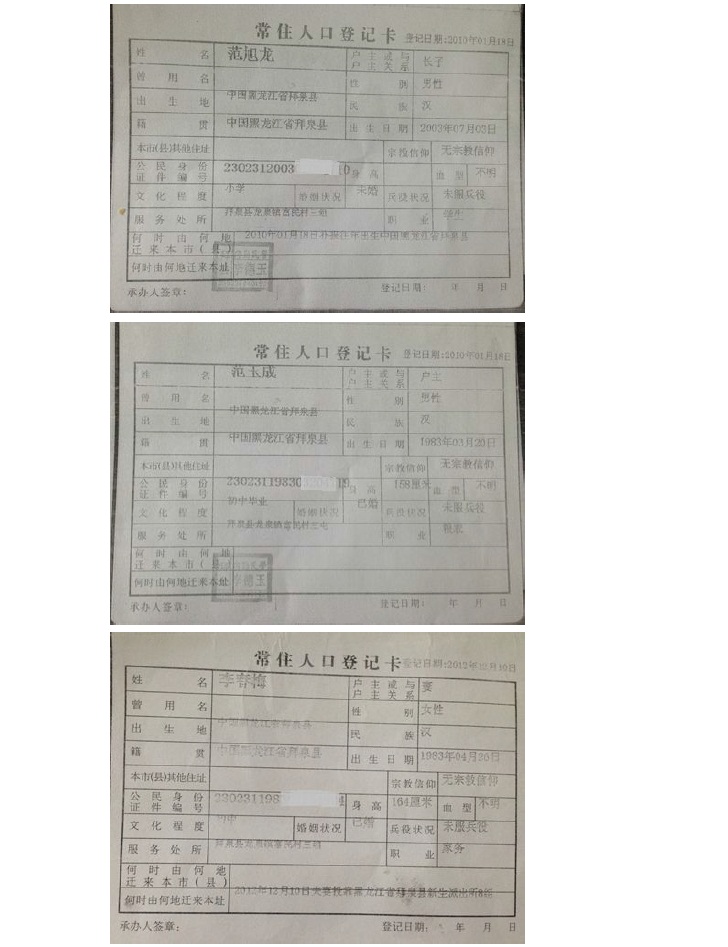 常住人口登记卡 登记日期:2010年01月18日
姓名 范旭龙 户主或与户主关系 长子
曾用名 性别 男性
出生地 中国黑龙江省拜泉县 民族 汉
籍贯 中国黑龙江省拜泉县 出生日期 2003年07月03日
本市(县)其他住址 宗教信仰 无宗教信仰
公民身份证件编号 2302312003 10 身高 血型 不明
文化程度 小学 婚姻状况 未婚 兵役状况 未服兵役
服务处所 拜泉县龙泉镇富民村三屯 职业 学生
何时由何地迁来本市(县) 2010年01月18日补报往年出生中国黑龙江省拜泉县
何时由何地迁来本址
承办人签章： 登记日期： 年 月 日
常住人口登记卡 登记日期:2010年01月18日
姓名 范玉成 户主或与户主关系 户主
曾用名 性别 男性
出生地 中国黑龙江省拜泉县 民族 汉
籍贯 中国黑龙江省拜泉县 出生日期 1983年03月20日
本市(县)其他住址 宗教信仰 无宗教信仰
公民身份证件编号 23023119830 19 身高 158厘米 血型 不明
文化程度 初中毕业 婚姻状况 已婚 兵役状况 未服兵役
服务处所 拜泉县龙泉镇富民村三屯 职业
何时由何地迁来本市(县)
何时由何地迁来本址
承办人签章： 登记日期： 年 月 日
常住人口登记卡 登记日期:2012年12月10日
姓名 李春梅 户主或与户主关系 妻
曾用名 性别 女性
出生地 中国黑龙江省拜泉县 民族 汉
籍贯 中国黑龙江省拜泉县 出生日期 1983年04月26日
本市(县)其他住址 宗教信仰 无宗教信仰
公民身份证件编号 230231198 身高 164厘米 血型 不明
文化程度 初中 婚姻状况 已婚 兵役状况 未服兵役
服务处所 拜泉县龙泉镇富民村三屯 职业 家务
何时由何地迁来本市(县)
何时由何地迁来本址 2012年12月10日夫妻投靠黑龙江省拜泉县新生派出所
承办人签章： 登记日期： 年 月 日